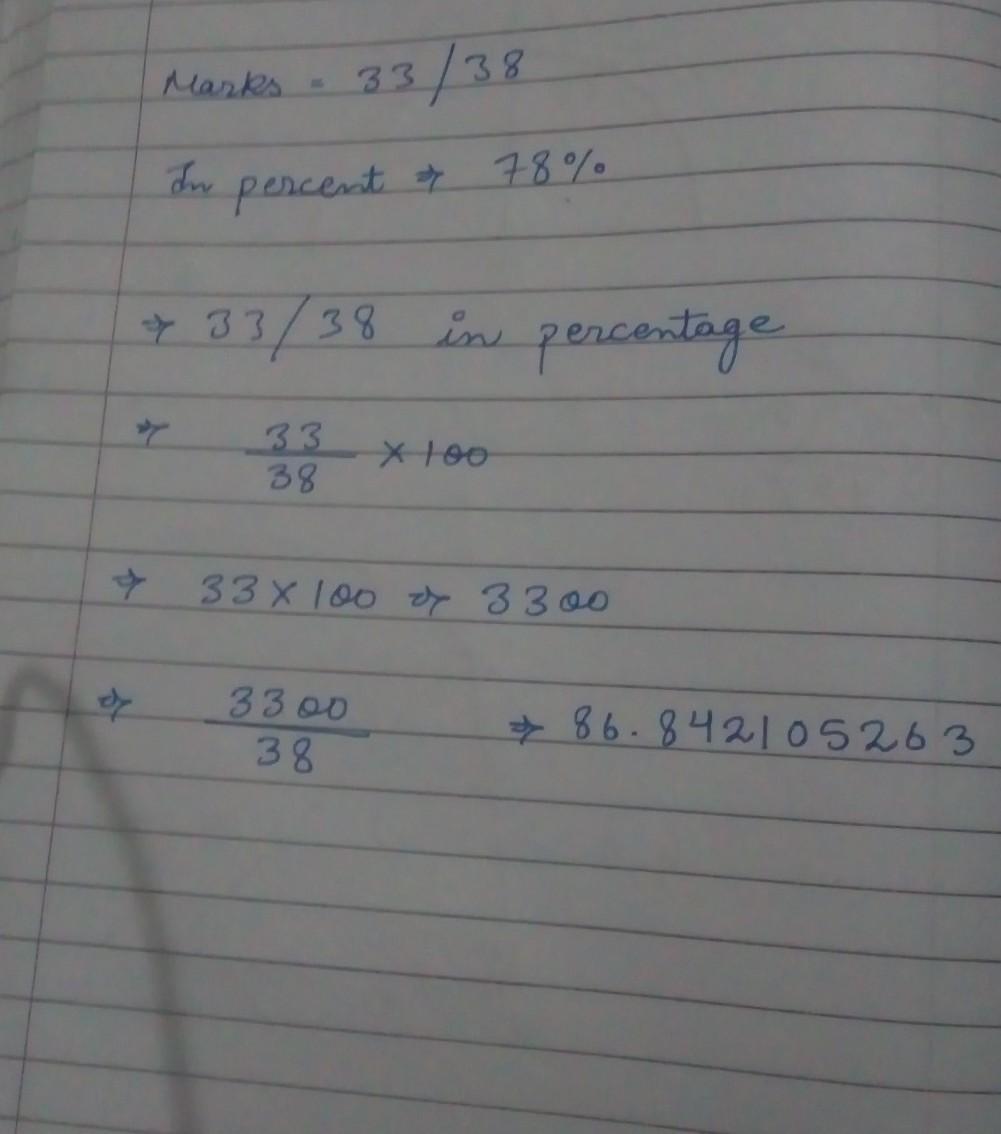 Marks = 33/38
In percent ⇒ 78%
⇒ 33/38 in percentage
⇒ 33/38 × 100
⇒ 33 × 100 ⇒ 3300
⇒ 3300/38 ⇒ 86.842105263